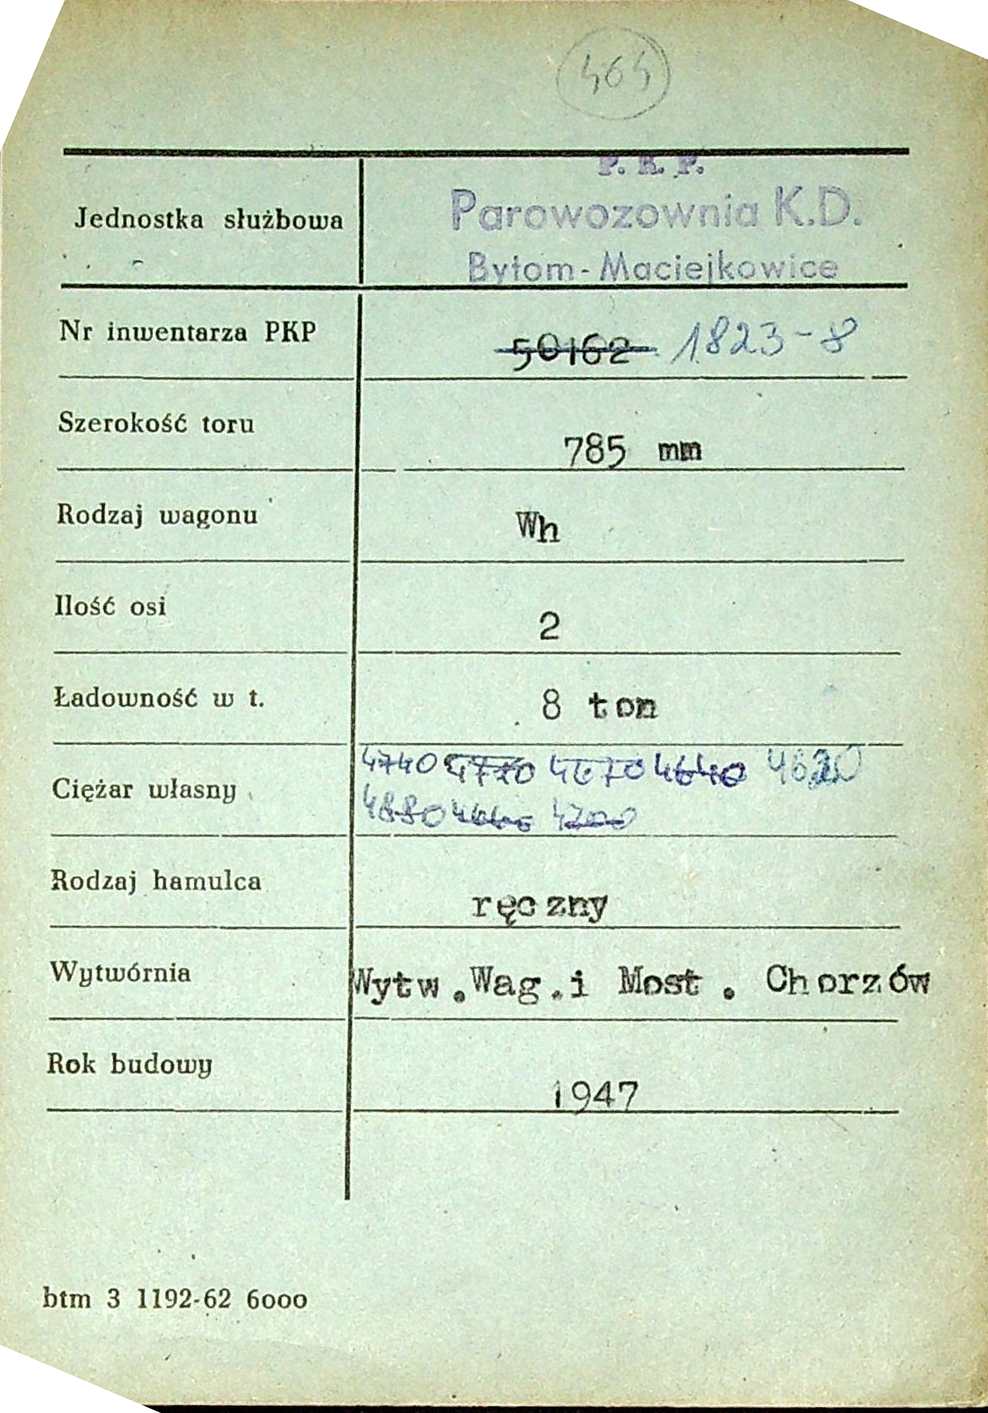 464
P. K. P.
Jednostka służbowa Parowozownia K.D.
Bytom-Maciejkowice
Nr inwentarza PKP 50162 1823-8
Szerokość toru 785 mm
Rodzaj wagonu Wh
Ilość osi 2
Ładowność w t. 8 ton
4740 4770 4670 4640
Ciężar własny
4880 4200
Rodzaj hamulca ręczny
Wytwórnia Wytw. Wag. i Most. Chorzów
Rok budowy 1947
btm 3 1192-62 6000